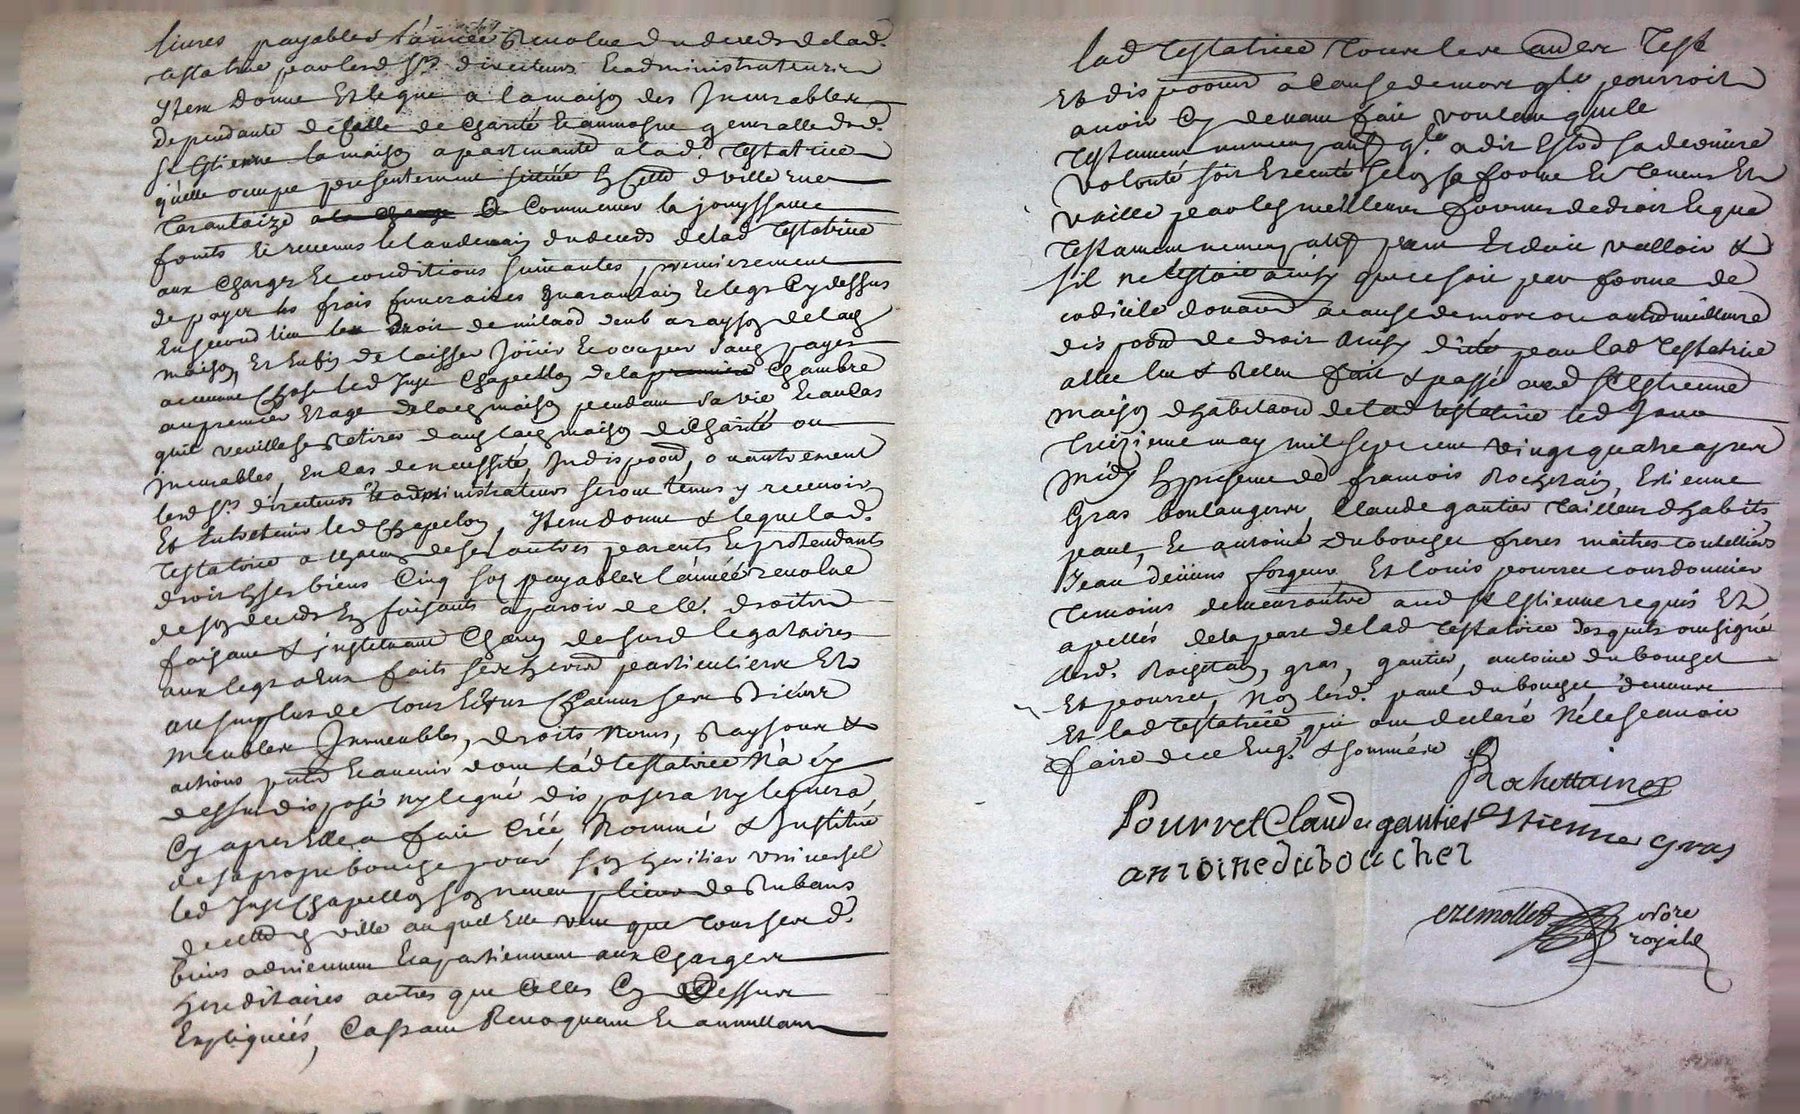 livres payables l'année revolue du deceds de lad.
testatrice par lesd Srs directeurs et administrateurs
Item donne et legue a la maison des Incurables
dependante de celle de Charité et aumosne generalle dud.
St Estienne la maison apartenante a lad. testatrice
qu'elle occupe presentement scituée en cette ville rue
Tarantaize a la charge a commencer la jouyssance
fruits et revenus le landemain du deceds de lad testatrice
aux charges et conditions suivantes, premierement
de payer les frais funeraires quarantain et legs cy dessus
En second lieu le droit de milaod deub a rayson de lad
maison, Et Enfin de laisser joüir et occuper sans payer
aucune chose led Just Chapellon de la premiere chambre
au premier Etage de lad maison pendant sa vie et au cas
quil veuille se retirer dans lad maison de Charité ou
incurables, en cas de necessité, Indispoon, ou autrement
lesd Srs directeurs et administrateurs seront tenus y recevoir
Et Entretenir led Chapellon, Item donne & legue lad.
Testatrice a chacun de ses autres parents et pretendants
droit en ses biens cinq sols payables l'année revolue
de son deceds en faisants aparoir de le. droit
faisant & jnstituant chacun de susd legataires
aux legs a eux faits ses heritiers particuliers Et
au surplus de tous et uns chacuns ses biens
meubles Immeubles, droits noms, raysons &
actions pnts et avenir dont lad testatrice n'a cy
dessus disposé ny legué disposera ny leguera
Cy apres Elle a fait créé, nommé & Institué
de sa propre bouche pour son heritier universel
led Just Chapellon son neveu plieur de Rubans
de cette ville auquel Elle veut que tous sesd.
biens adviennent et apartiennent aux charges
hereditaires autres que celles cy dessus
Expliquées, Cassant Revoquant et annullant
lad testatrice tous autres test
Et dispoons a cause de mort qlle pourroit
avoir cy devant fait voulant que le
testament nuncupatif qlle a dit Estre sa derniere
volonté soit Executé selon sa forme et teneur Et
vaille par les meilleures formes de droit et que
testament nuncupatif peut et doit valloir &
sil n'estoit ainsy que ce soit par forme de
codicile donaon a cause de mort ou autre meilleure
dispoon de droit Ainsy dicté par lad testatrice
a elle leu & releu fait & passé aud St Estienne
maison d'habitaon de lad testatrice led jour
treizieme may mil sept cent vingt quatre apres
midy En presence de francois Rochetain, Estienne
Gras boulangers, Claude gautier tailleur d'habits
paul, et antoine duboucher freres maitres coutelliers
Jean deiiuns forgeur Et louis pourret courdonnier
temoins demeurants aud St Estienne requis Et
apellés de la part de lad testatrice desquels ont signé
lesd. Rochetain, gras, gautier, antoine duboucher
Et pourret, non lesd. paul duboucher, deiiuns
Et lad testatrice qui ont declaré Ne le scavoir
faire de ce Enq. & sommés
Rochettain
Pourret Claude gautier estienne Gras
antoine duboucher
ezemollet nore
royal